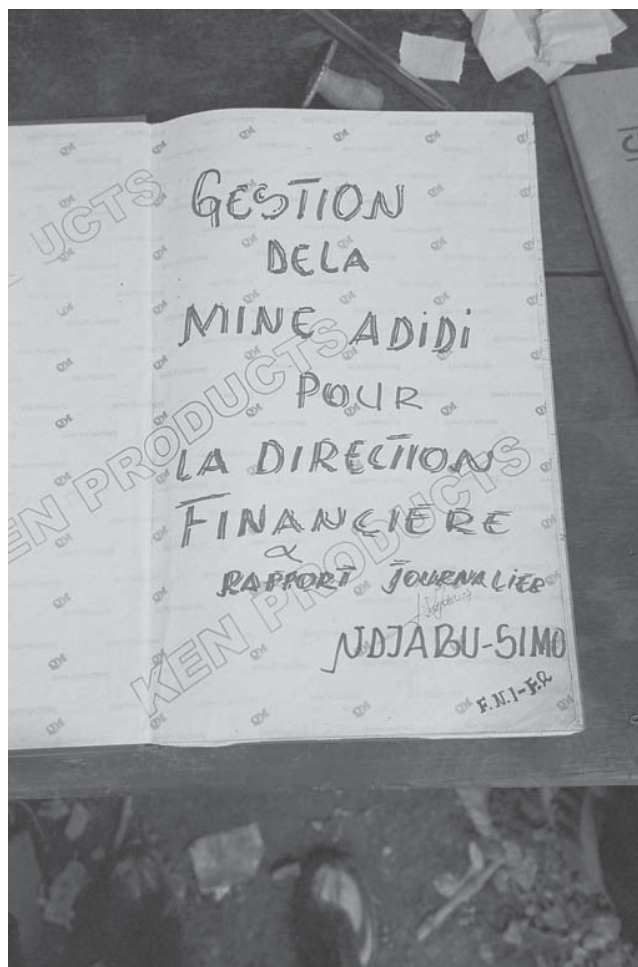 GESTION
DELA
MINE ADIDI
POUR
LA DIRECTION
FINANCIÈRE
&
RAPPORT JOURNALIER
NDJABU-SIMO
F.N.I-F.R
KEN PRODUCTS
UCTS
EN PRODUCTS
KEN PRODUCTS